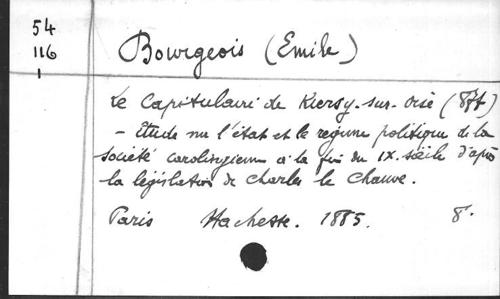 54
116
1
Bourgeois (Emile)
Le Capitulaire de Kiersy-sur-Oise (877)
- Etude sur l'état et le régime politique de la
société carolingienne à la fin du IX. siècle d'après
la législation de Charles le Chauve.
Paris Hachette. 1885. 8°.